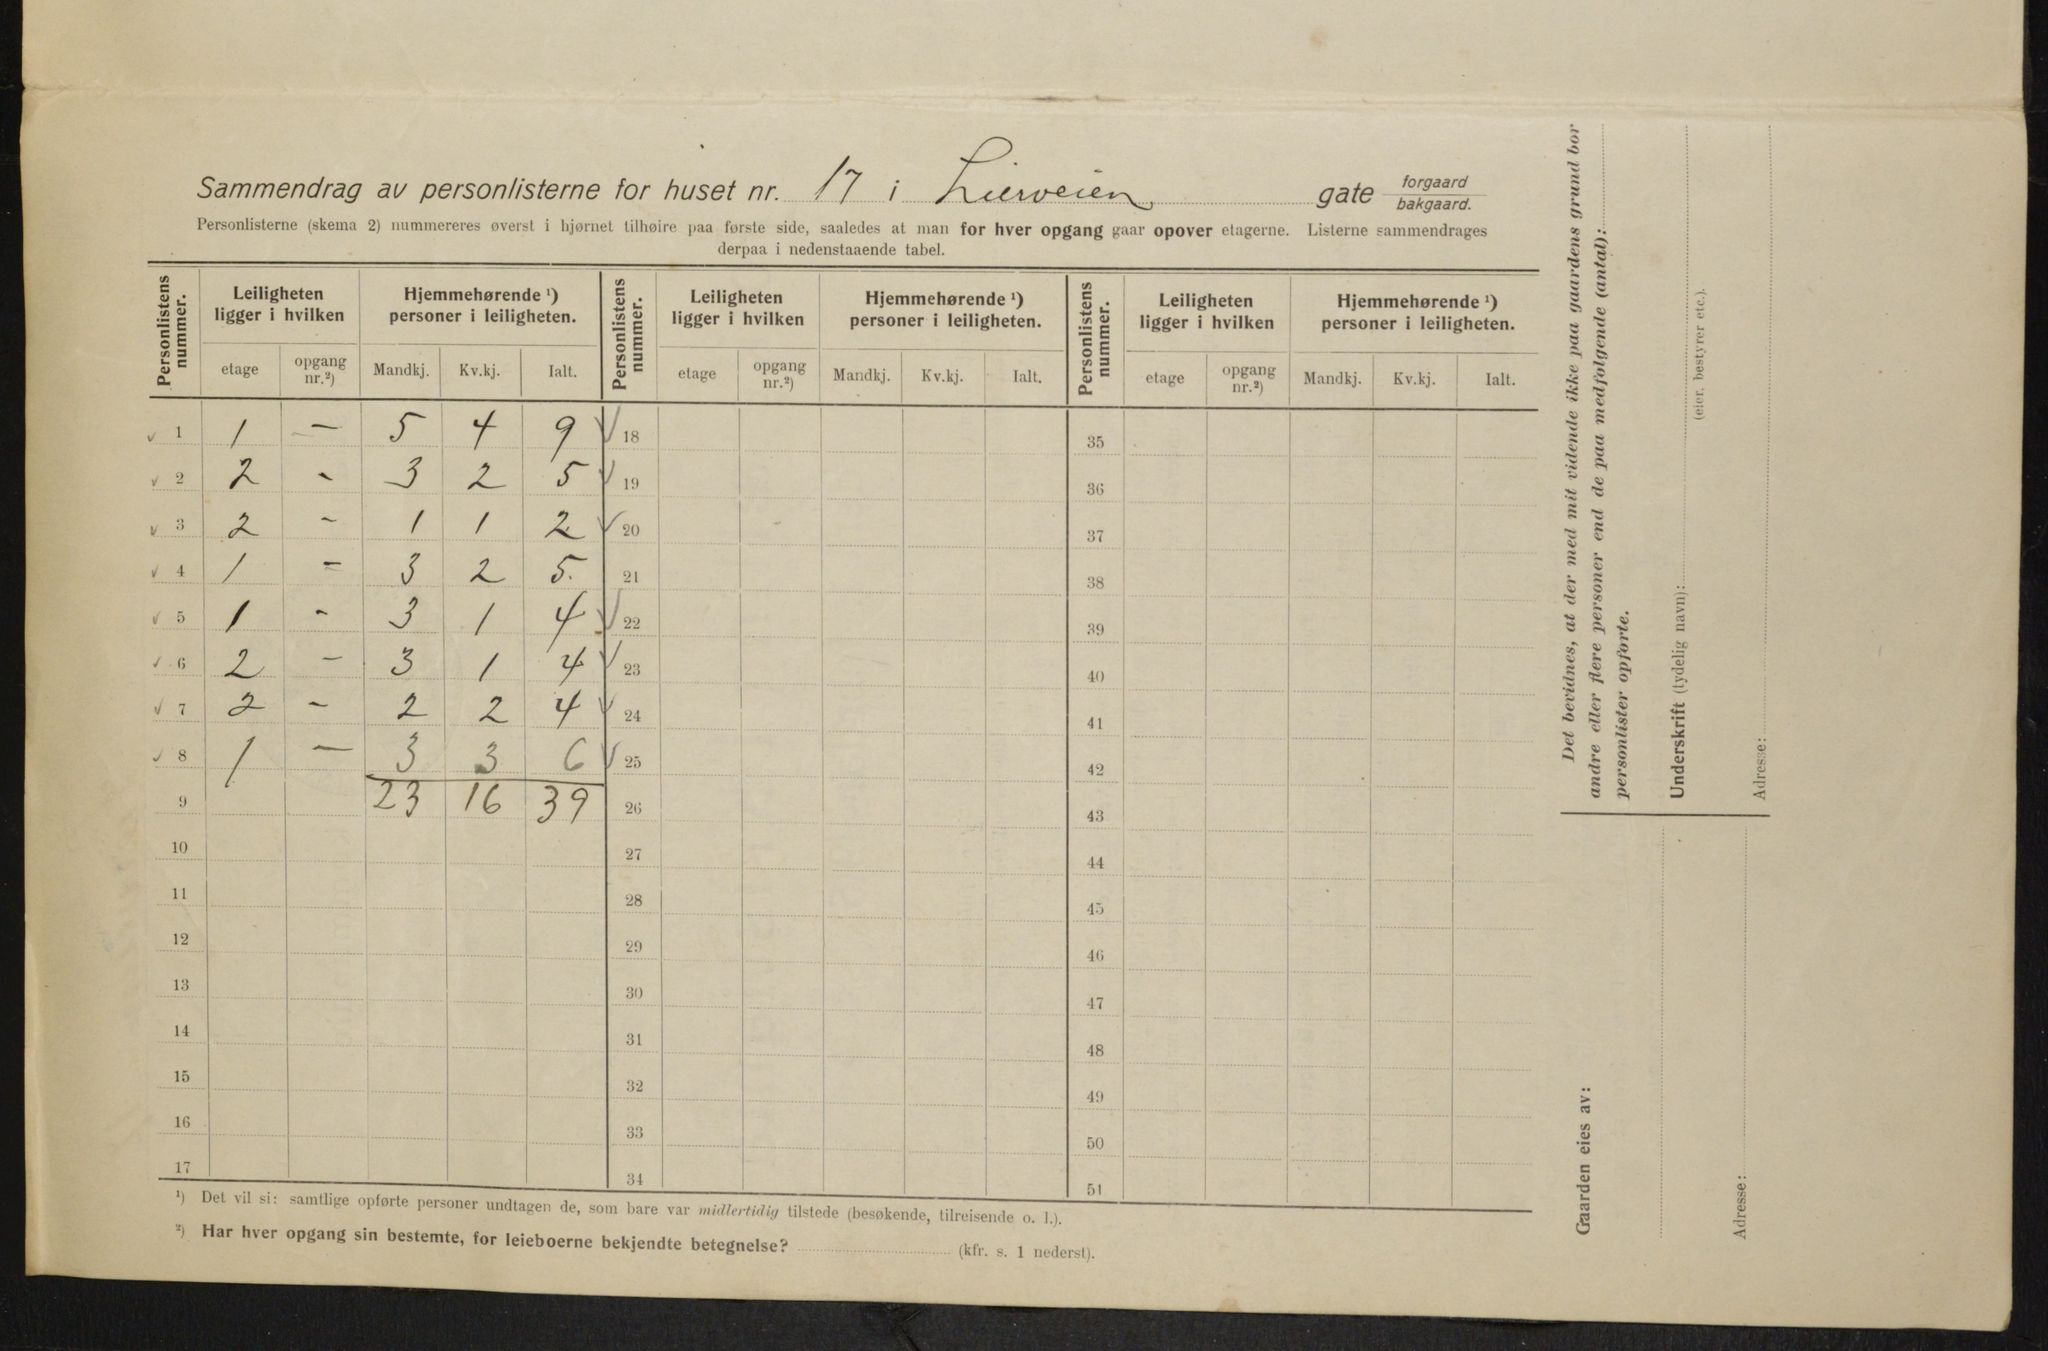 Sammendrag av personlisterne for huset nr. 17 i Lierveien gate forgaard bakgaard.
Personlisterne (skema 2) nummereres øverst i hjørnet tilhøire paa første side, saaledes at man for hver opgang gaar opover etagerne. Listerne sammendrages
derpaa i nedenstaaende tabel.
Personlistens nummer. Leiligheten ligger i hvilken Hjemmehørende ¹) personer i leiligheten. Personlistens nummer. Leiligheten ligger i hvilken Hjemmehørende ¹) personer i leiligheten. Personlistens nummer. Leiligheten ligger i hvilken Hjemmehørende ¹) personer i leiligheten.
etage opgang nr.²) Mandkj. Kv.kj. Ialt. etage opgang nr.²) Mandkj. Kv.kj. Ialt. etage opgang nr.²) Mandkj. Kv.kj. Ialt.
✓ 1 1 — 5 4 9 ✓ 18 35
✓ 2 2 - 3 2 5 ✓ 19 36
✓ 3 2 - 1 1 2 ✓ 20 37
✓ 4 1 - 3 2 5. 21 38
✓ 5 1 - 3 1 4 ✓ 22 39
✓ 6 2 - 3 1 4 ✓ 23 40
✓ 7 2 - 2 2 4 ✓ 24 41
✓ 8 1 — 3 3 6 ✓ 25 42
9 23 16 39 26 43
10 27 44
11 28 45
12 29 46
13 30 47
14 31 48
15 32 49
16 33 50
17 34 51
¹) Det vil si: samtlige opførte personer undtagen de, som bare var midlertidig tilstede (besøkende, tilreisende o. l.).
²) Har hver opgang sin bestemte, for leieboerne bekjendte betegnelse? (kfr. s. 1 nederst).
Det bevidnes, at der med mit vidende ikke paa gaardens grund bor
andre eller flere personer end de paa medfølgende (antal):
personlister opførte.
Underskrift (tydelig navn):
(eier, bestyrer etc.).
Adresse:
Gaarden eies av:
Adresse: